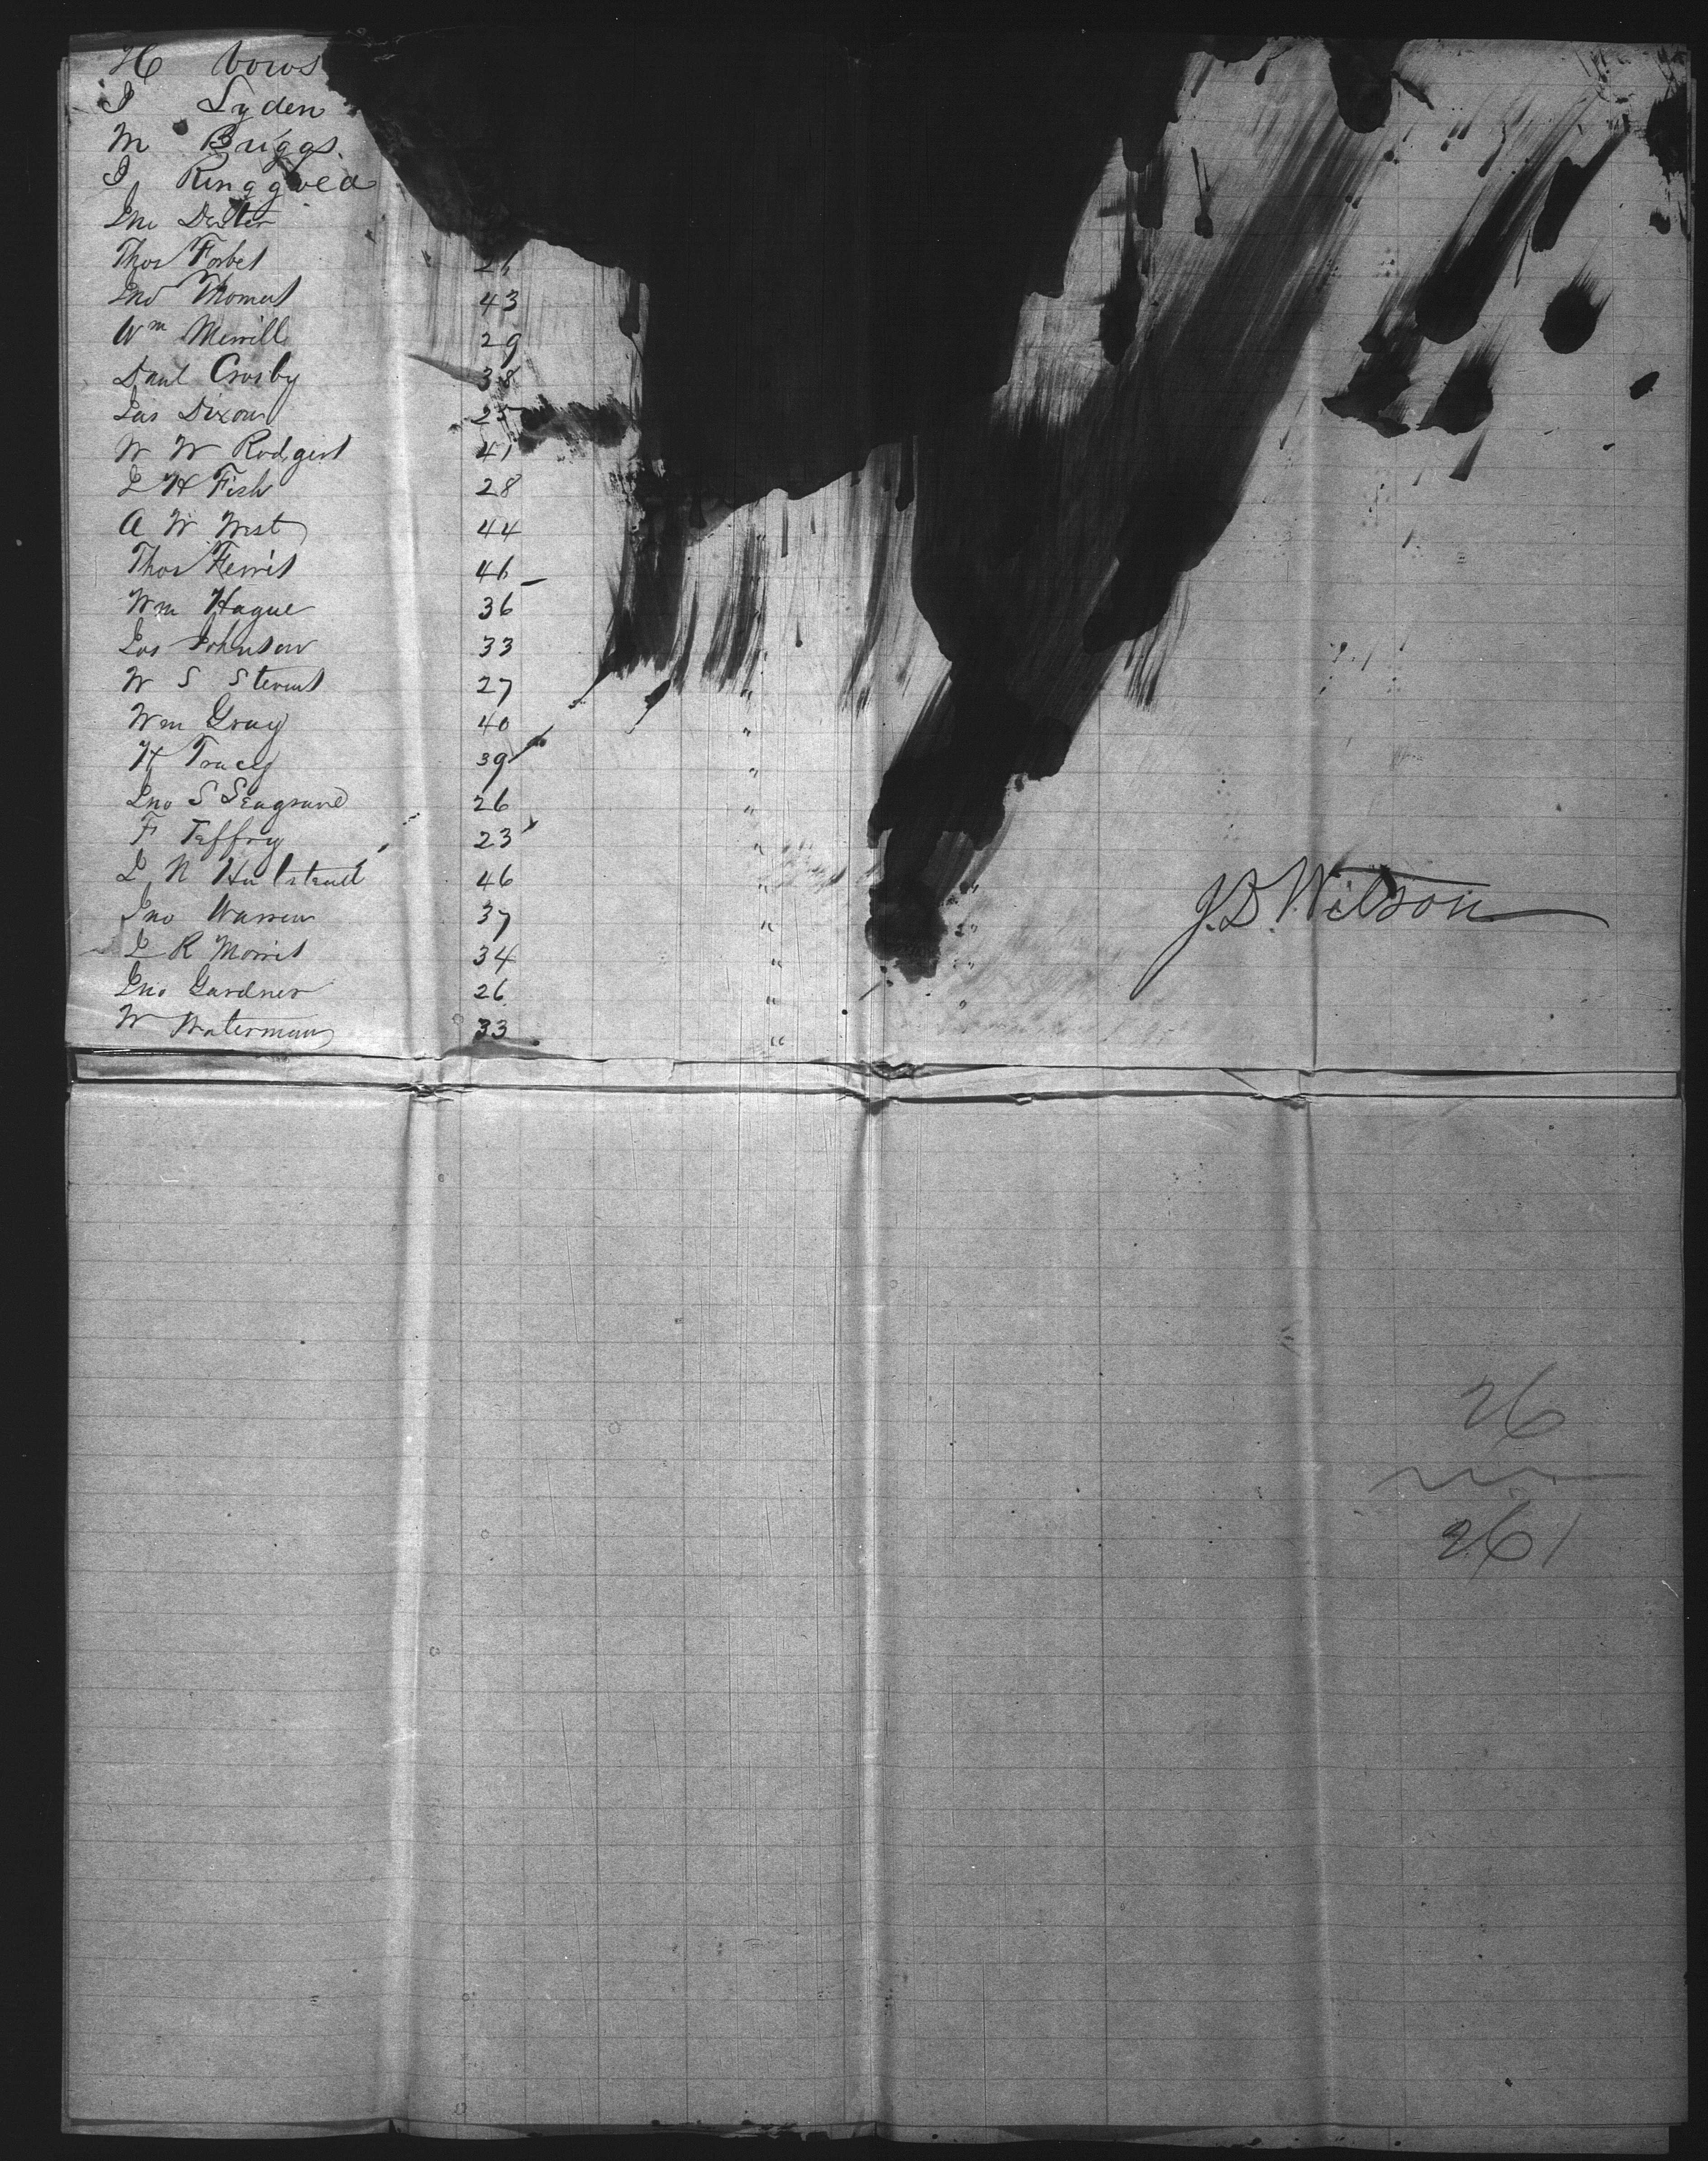 H Vows
J Lyden
M Briggs
J Ringgold
Jno Dexter
Thos Forbes 24
Jno Moment 43
Wm Merrill 29
Danl Crosby 38
Jas Dixon 25
W W Rodgers 41
L H Fish 28
A W West 44
Thos Ferris 46
Wm Hague 36 "
Jos Johnson 33 "
W S Sterns 27 "
Wm Gray 40 "
H Tracy 39 "
Jno S Seagrave 26 "
F Jeffry 23 "
L N Halstead 46 " "
Jno Warren 37 " "
L R Morris 34 " "
Jno Gardner 26 " "
W Waterman 33 "
J. D. Wilson
26
261